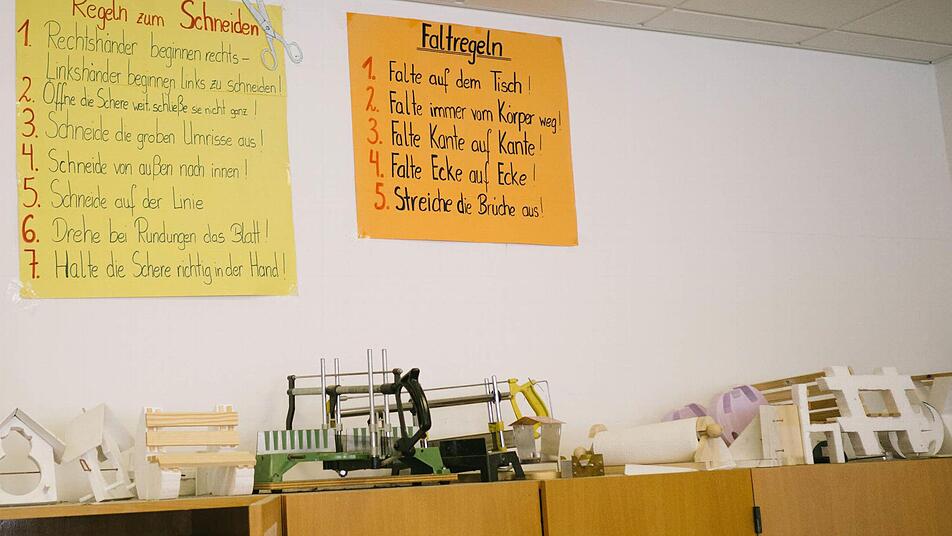 Regeln zum Schneiden
1. Rechtshänder beginnen rechts –
Linkshänder beginnen links zu schneiden!
2. Öffne die Schere weit, schließe sie nicht ganz!
3. Schneide die groben Umrisse aus!
4. Schneide von außen nach innen!
5. Schneide auf der Linie
6. Drehe bei Rundungen das Blatt!
7. Halte die Schere richtig in der Hand!
Faltregeln
1. Falte auf dem Tisch!
2. Falte immer vom Körper weg!
3. Falte Kante auf Kante!
4. Falte Ecke auf Ecke!
5. Streiche die Brüche aus!